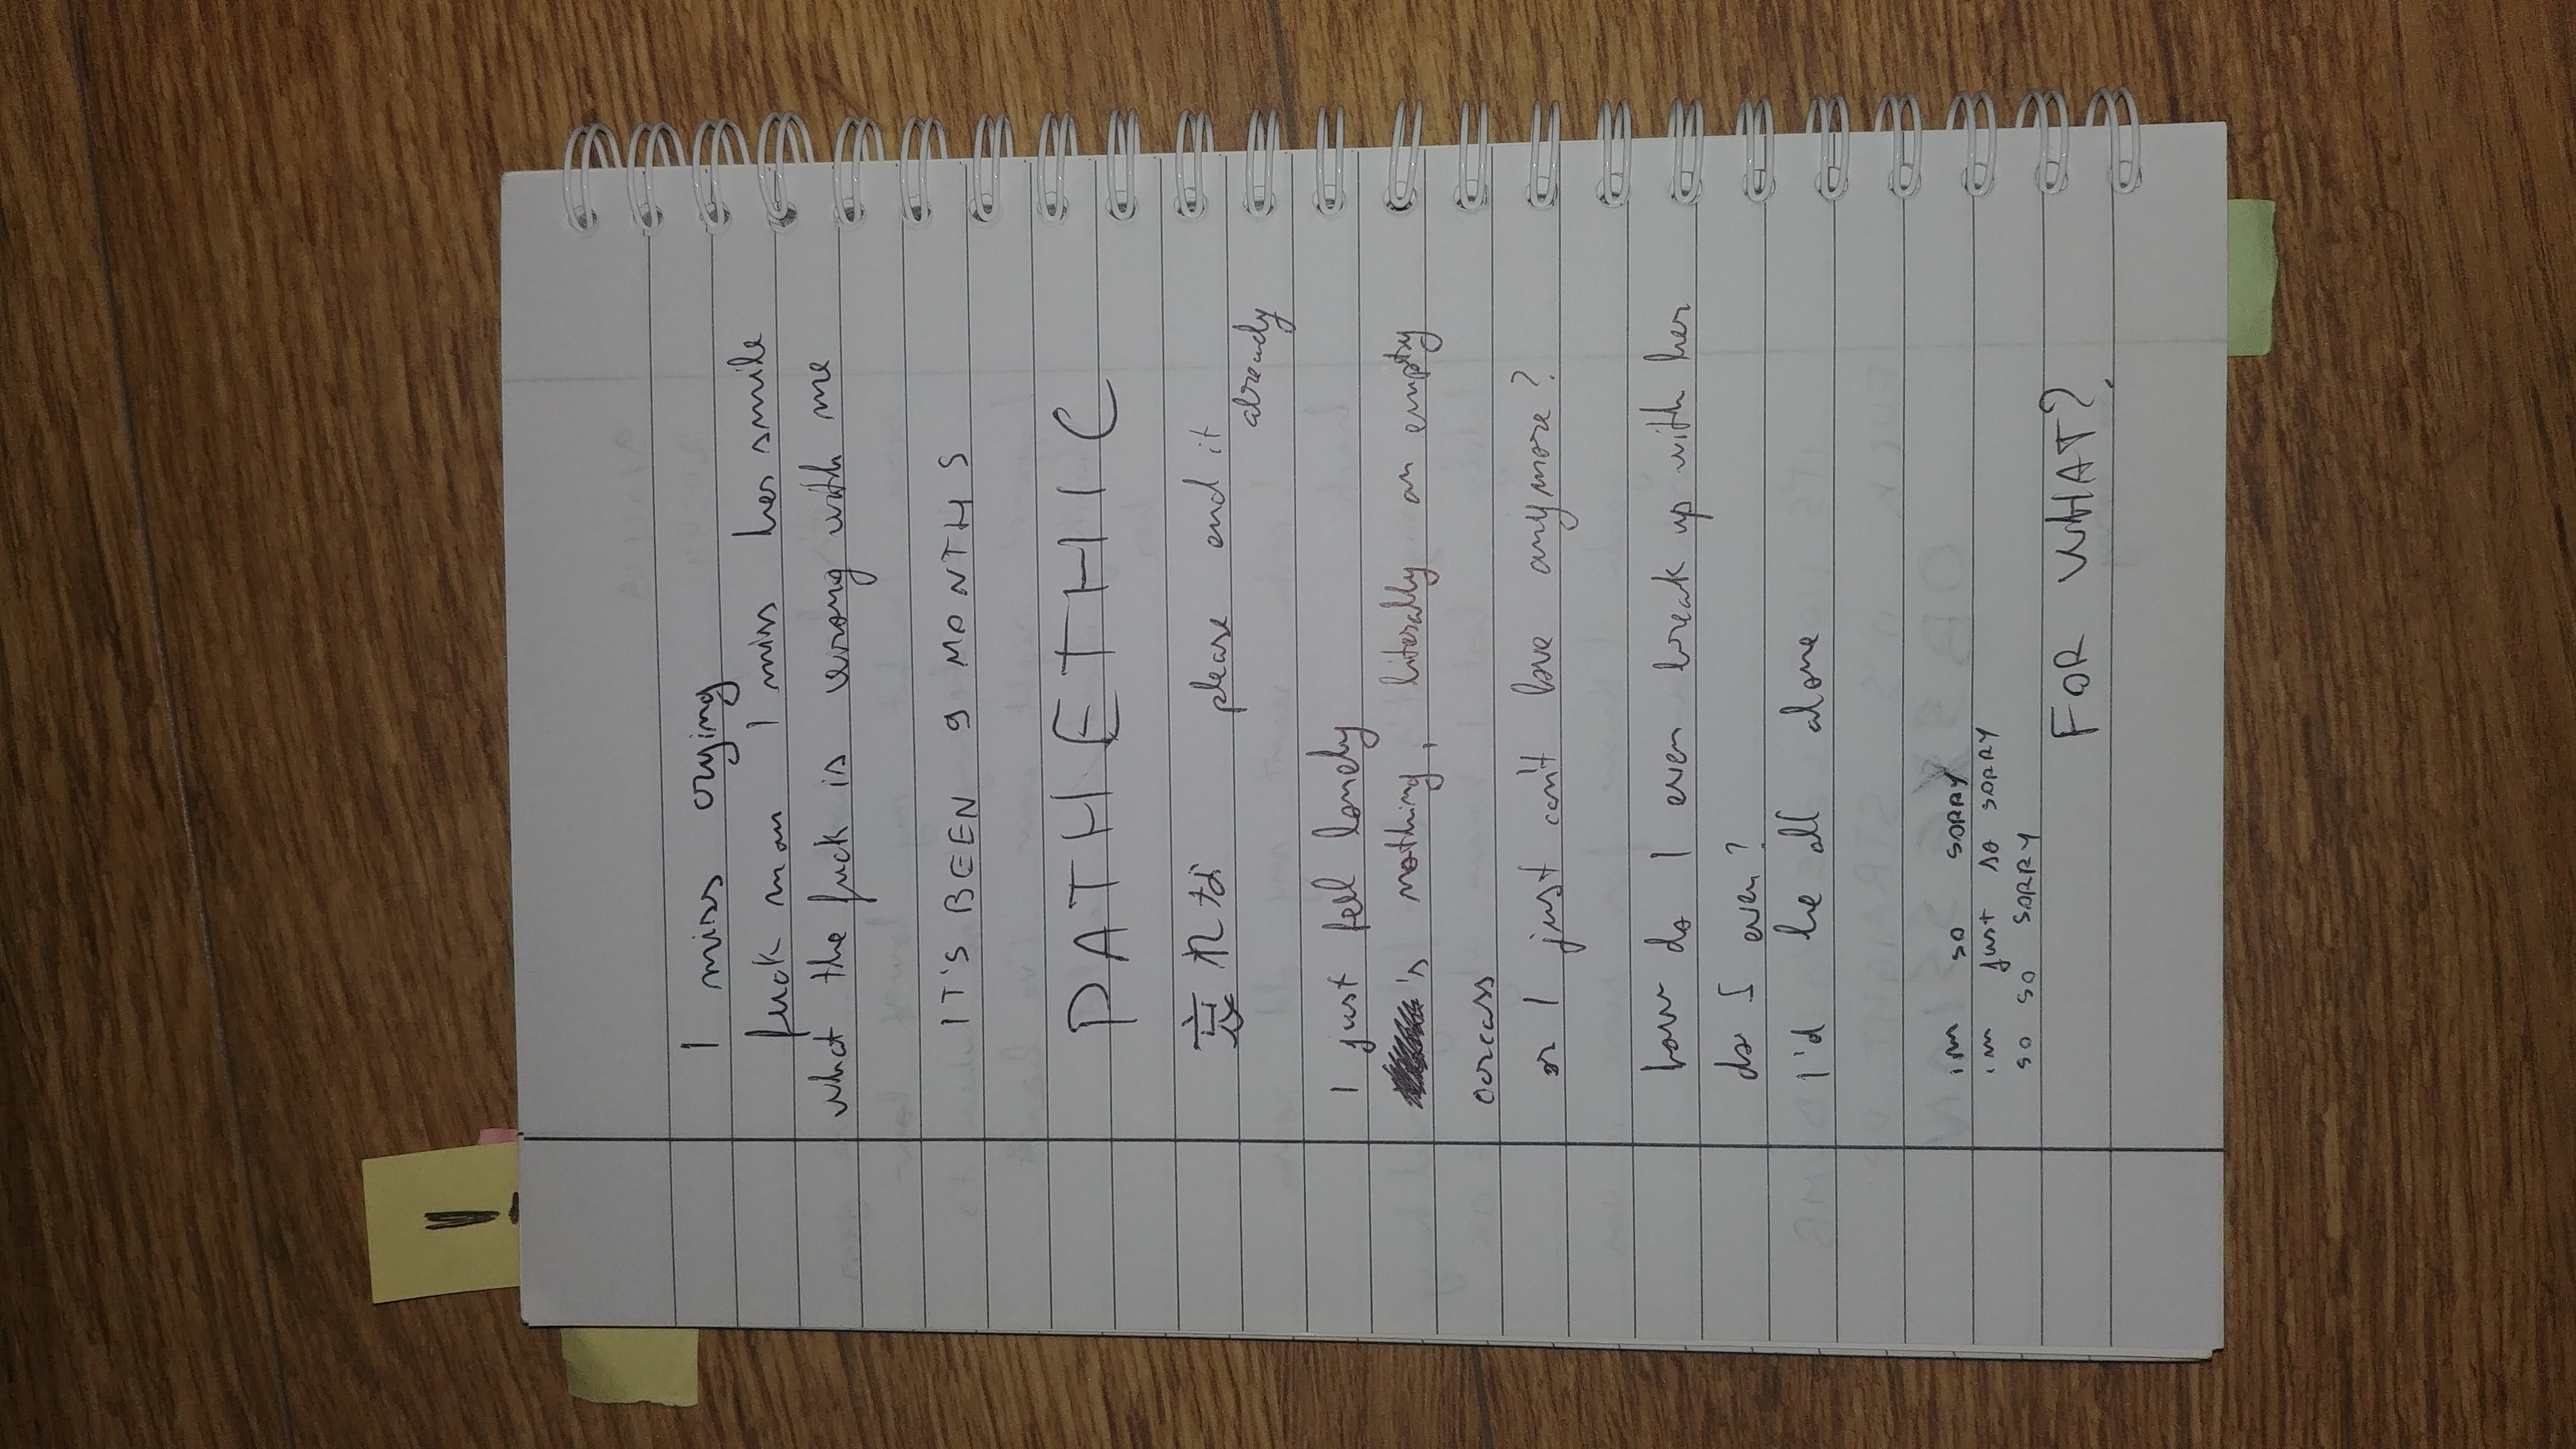 !
I miss crying
fuck man I miss her smile
what the fuck is wrong with me
IT'S BEEN 9 MONTHS
PATHETHIC
哀れな please end it
already
I just feel lonely
's nothing, literally an empty
carcass
or I just can't love anymore?
how do I even break up with her
do I even?
I'd be all alone
im so SORRY
im just so SORRY
so so SORRY
FOR WHAT?